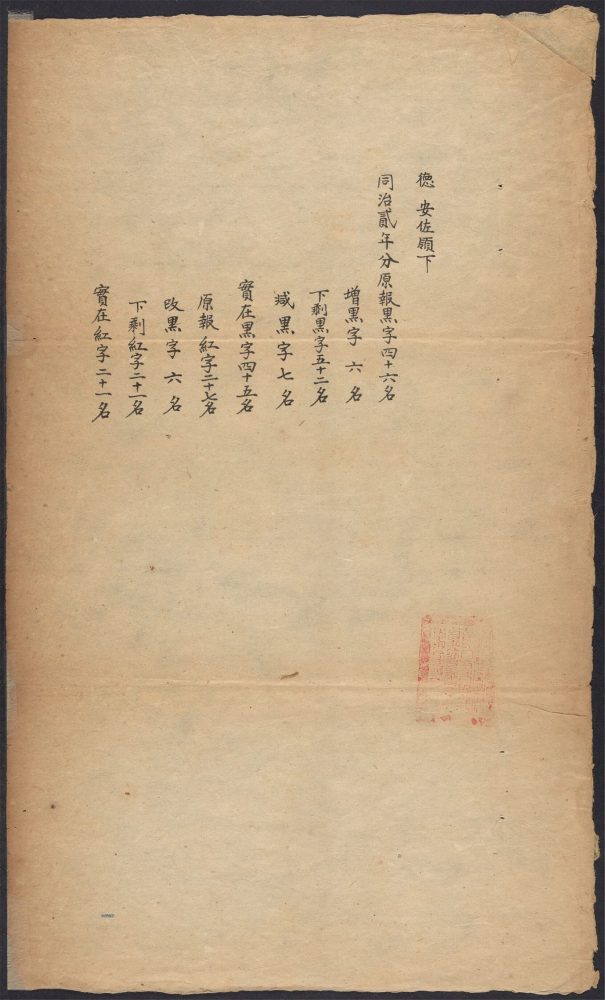 德 安佐領下
同治貳年分原報黑字四十六名
增黑字 六 名
下剩黑字五十二名
減 黑 字 七 名
實在黑字四十五名
原報紅字二十七名
改黑字 六 名
下剩紅字二十一名
實在紅字二十一名